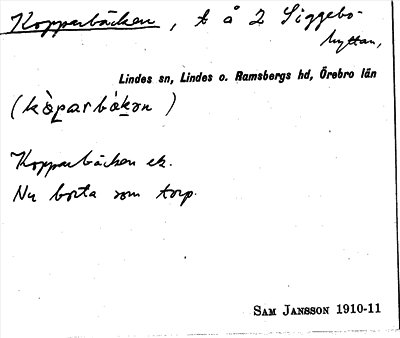 Kopparbäcken, t å 2 Siggebo-
hyttan,
Lindes sn, Lindes o. Ramsbergs hd, Örebro län
(kȯparbȧkɘn)
Kopparbäcken ek.
Nu borta som torp.
SAM JANSSON 1910-11